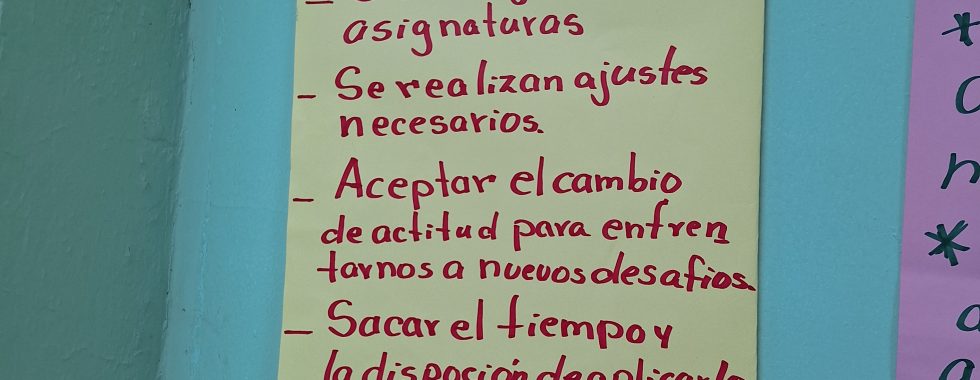 asignaturas
- Se realizan ajustes
necesarios.
- Aceptar el cambio
de actitud para enfren
tarnos a nuevos desafios.
- Sacar el tiempo y
la disposición de aplicarlo
*
n
*
a